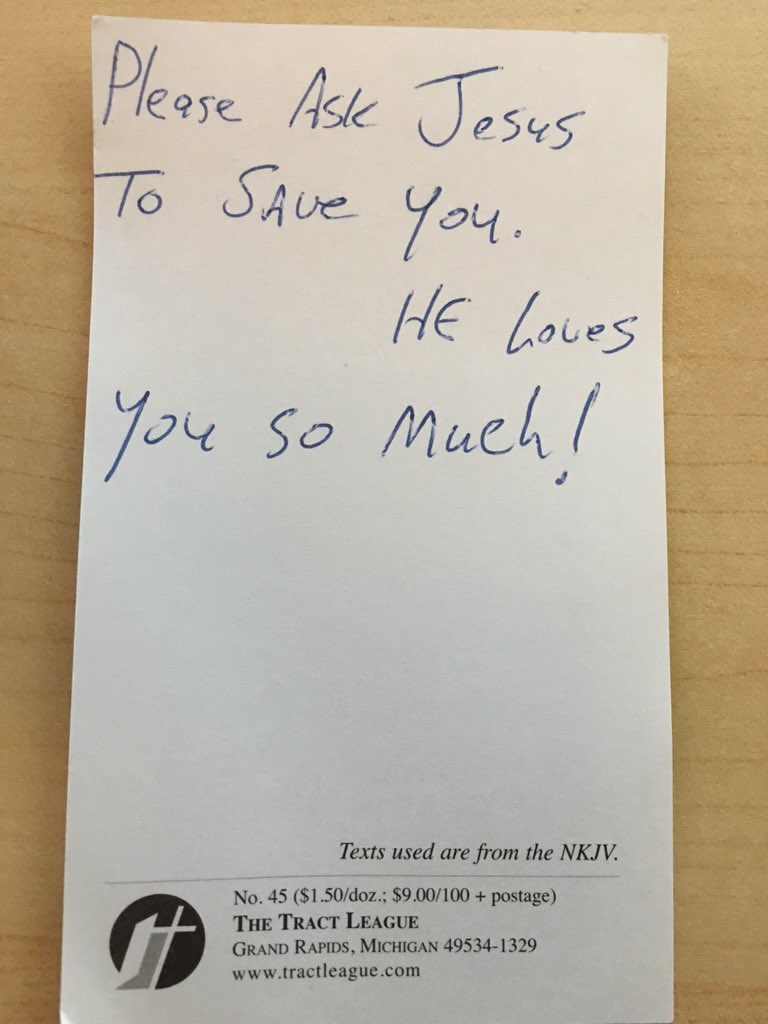 Please Ask Jesus
To Save You.
HE Loves
You so Much!
Texts used are from the NKJV.
No. 45 ($1.50/doz.; $9.00/100 + postage)
THE TRACT LEAGUE
GRAND RAPIDS, MICHIGAN 49534-1329
www.tractleague.com